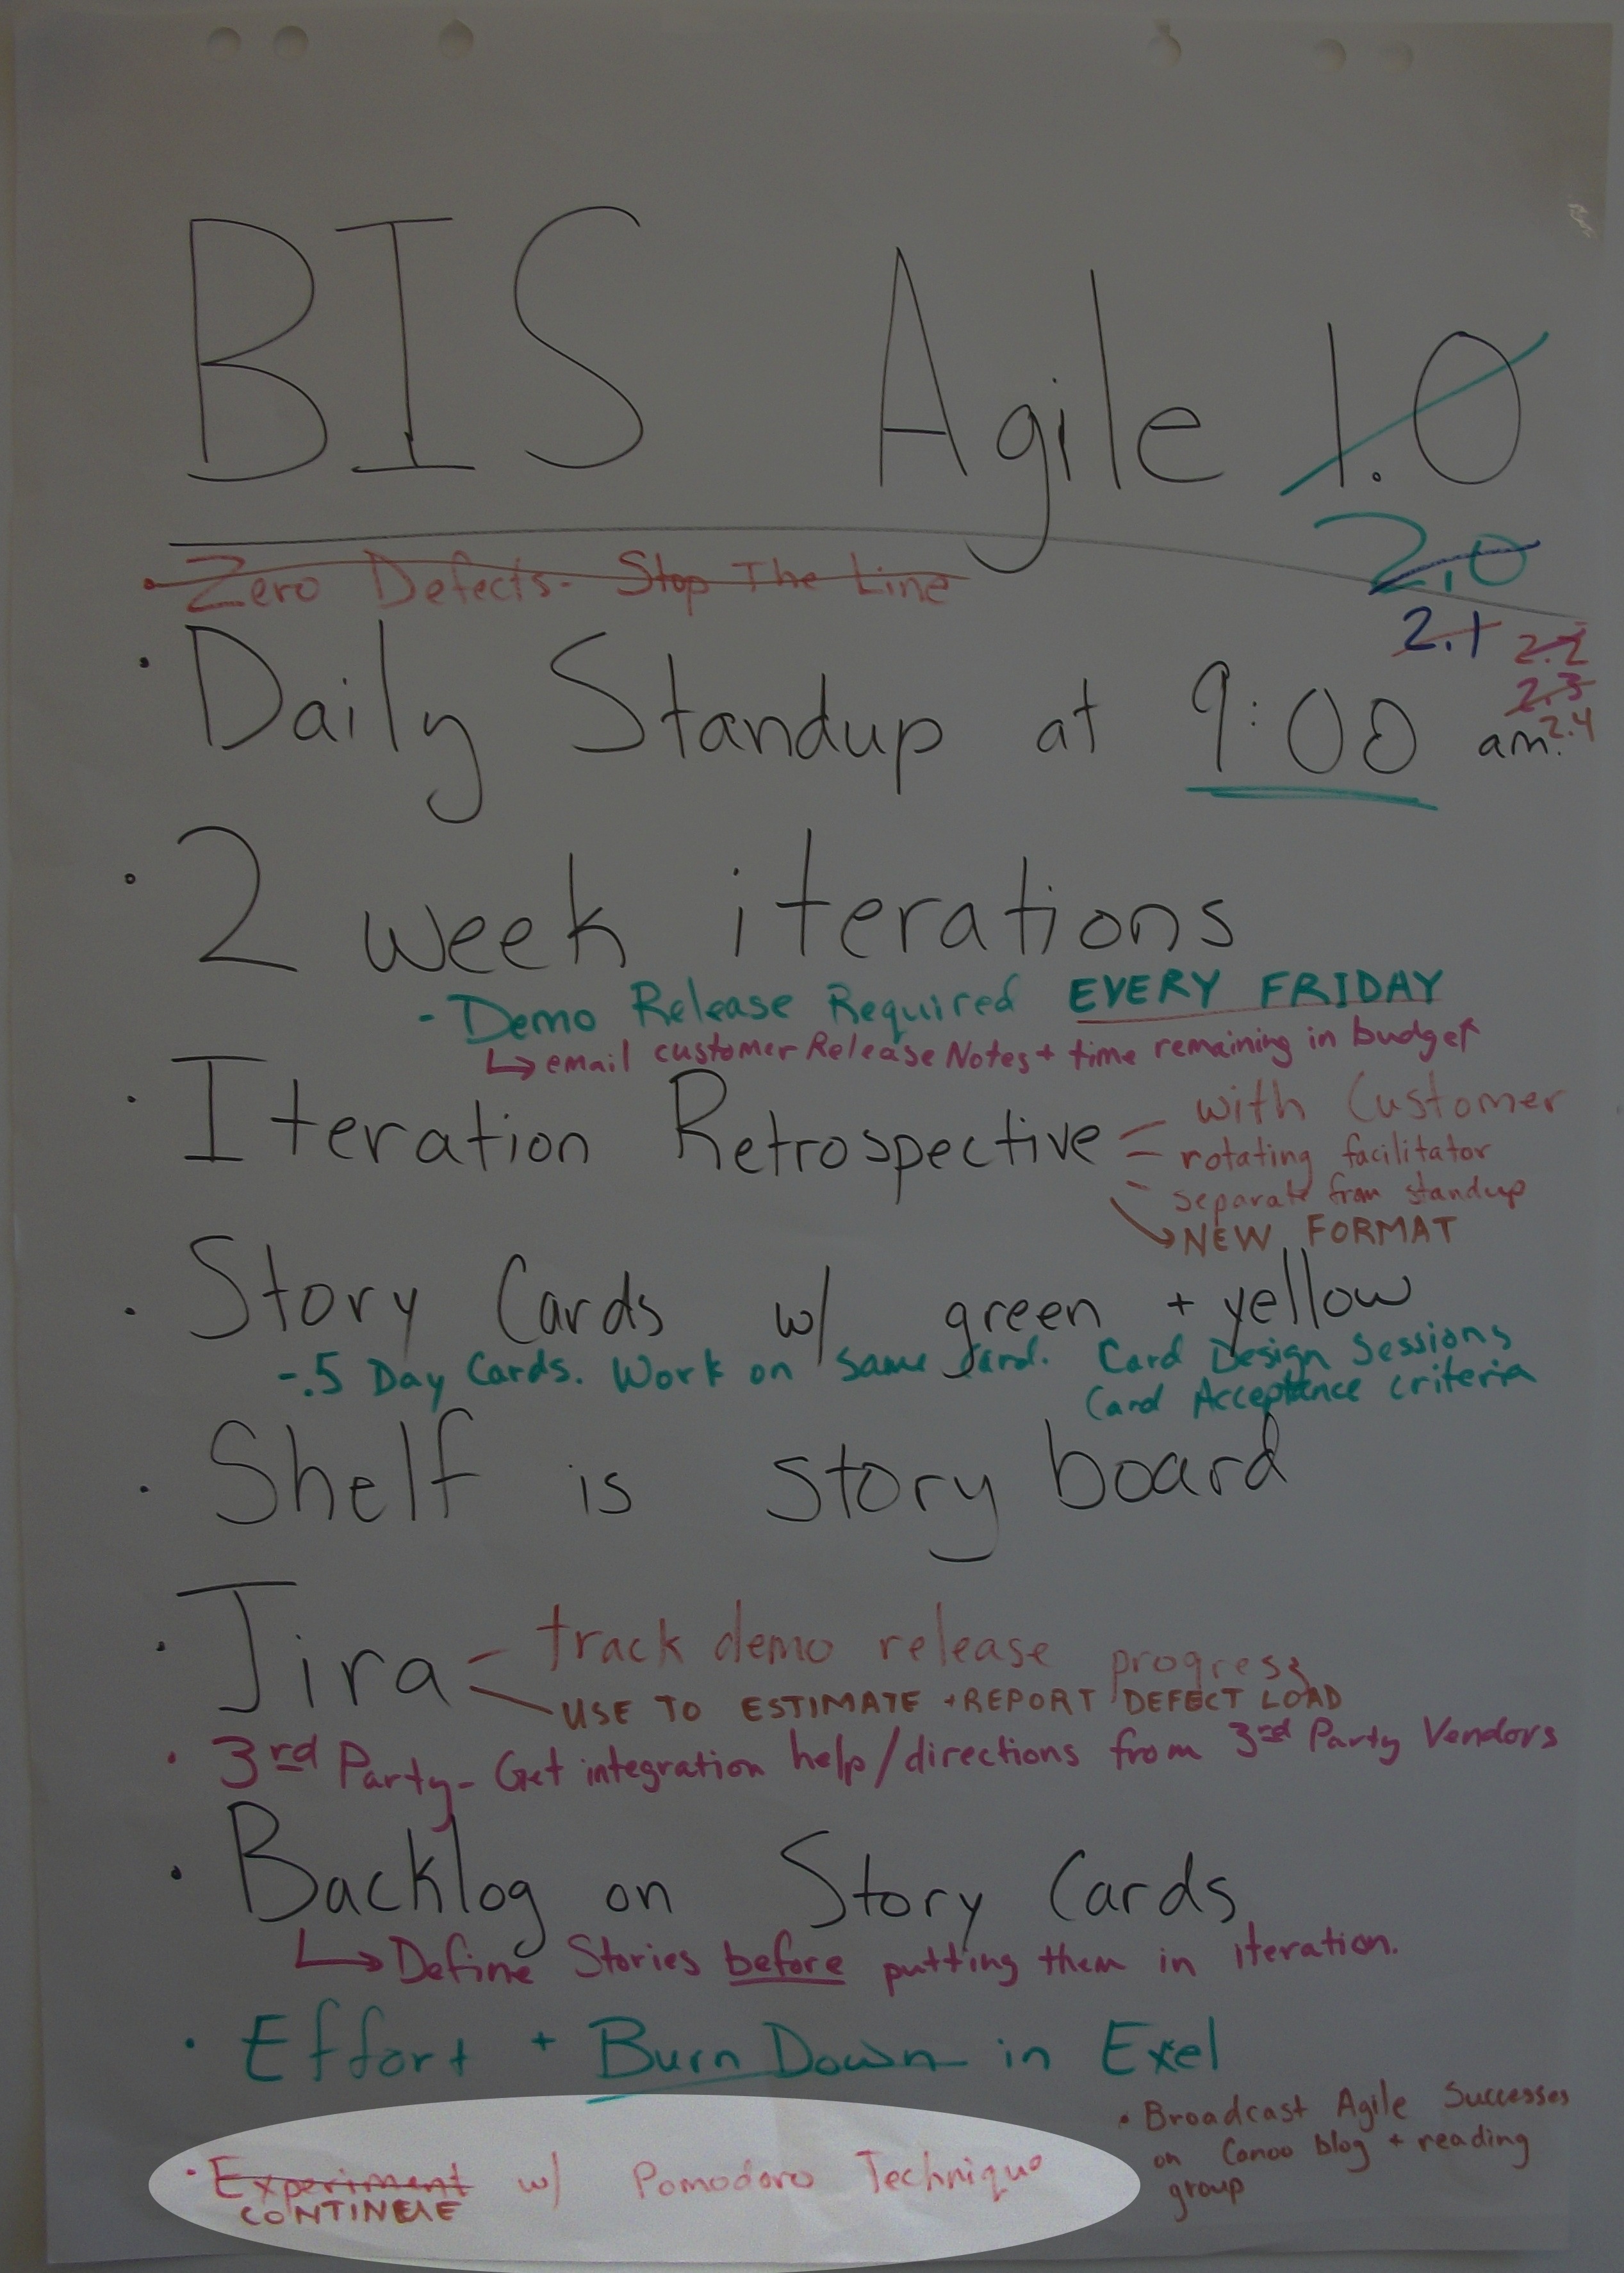 BIS Agile 1.0
2.0
2.1 2.2
2.3
2.4
• Zero Defects - Stop The Line
• Daily Standup at 9:00 am.
• 2 week iterations
- Demo Release Required EVERY FRIDAY
↳ email customer Release Notes + time remaining in budget
• Iteration Retrospective - with Customer
- rotating facilitator
- separate from standup
→ NEW FORMAT
• Story Cards w/ green + yellow
-.5 Day Cards. Work on same card. Card Design Sessions
Card Acceptance criteria
• Shelf is story board
• Jira - track demo release progress
- USE TO ESTIMATE + REPORT DEFECT LOAD
• 3rd Party - Get integration help/directions from 3rd Party Vendors
• Backlog on Story Cards
↳ Define Stories before putting them in iteration.
• Effort + Burn Down in Exel
• Experiment w/ Pomodoro Technique
CONTINUE
• Broadcast Agile Successes
on Canoo blog + reading
group